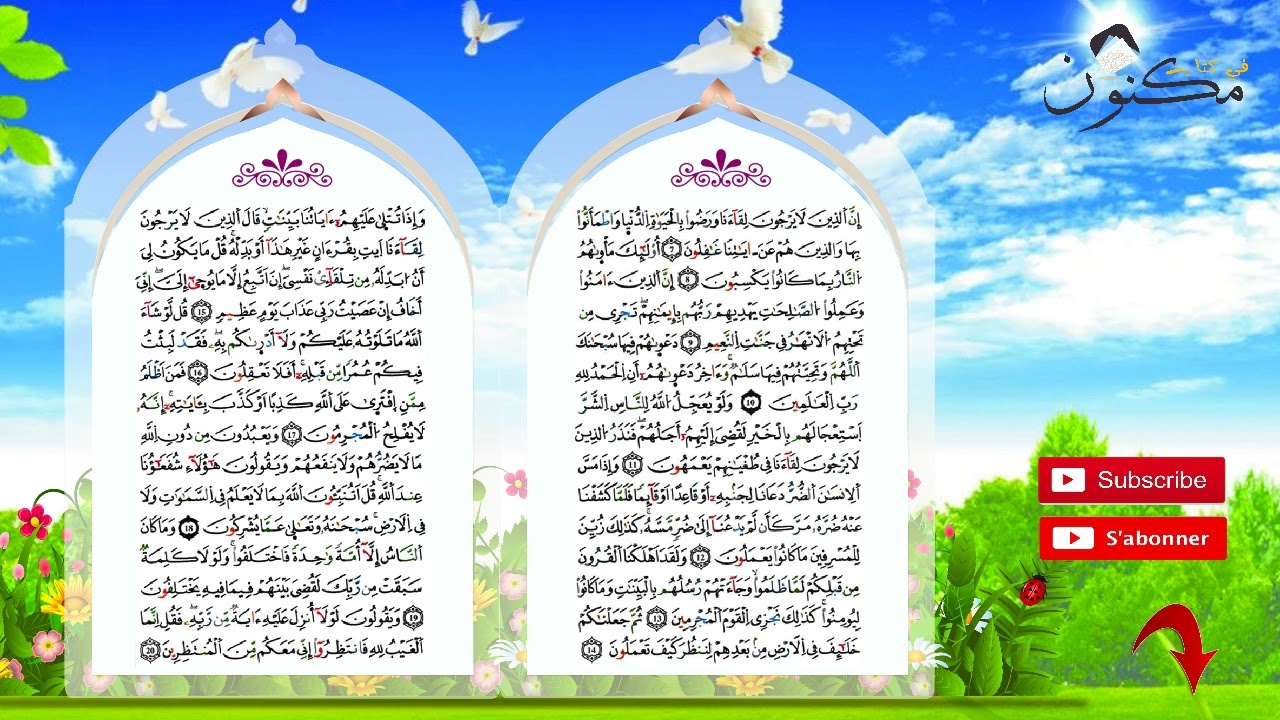 في كتاب
مكنون
إِنَّ اَلذِينَ لَا يَرْجُونَ لِقَآءَنَا وَرَضُواْ بِالْحَيَوٰةِ اِلدُّنْيَا وَاطْمَأَنُّواْ
بِهَا وَالذِينَ هُمْ عَنَ ـ ايَٰتِنَا غَٰفِلُونَ 7 أُوْلَٰٓئِكَ مَأْوَيٰهُمُ
اُلنَّارُ بِمَا كَانُواْ يَكْسِبُونَ 8 إِنَّ اَلذِينَ ءَامَنُواْ
وَعَمِلُواْ اُلصَّٰلِحَٰتِ يَهْدِيهِمْ رَبُّهُم بِإِيمَٰنِهِمْ تَجْرِے مِن
تَحْتِهِمُ اُلَانْهَٰرُ فِے جَنَّٰتِ اِلنَّعِيمِ 9 دَعْوَيٰهُمْ فِيهَا سُبْحَٰنَكَ
اَللَّهُمَّ وَتَحِيَّتُهُمْ فِيهَا سَلَٰمٞ وَءَاخِرُ دَعْوَيٰهُمُۥٓ أَنِ اِلْحَمْدُ لِلهِ
رَبِّ اِلْعَٰلَمِينَ 10 وَلَوْ يُعَجِّلُ اُللَّهُ لِلنَّاسِ اِلشَّرَّ
اَسْتِعْجَالَهُم بِالْخَيْرِ لَقُضِيَ إِلَيْهِمُۥٓ أَجَلُهُمْ فَنَذَرُ اُلذِينَ
لَا يَرْجُونَ لِقَآءَنَا فِے طُغْيَٰنِهِمْ يَعْمَهُونَ 11 وَإِذَا مَسَّ
اَلِانسَٰنَ اَلضُّرُّ دَعَانَا لِجَنۢبِهِۦٓ أَوْ قَاعِدًا اَوْ قَآئِمٗا فَلَمَّا كَشَفْنَا
عَنْهُ ضُرَّهُۥ مَرَّ كَأَن لَّمْ يَدْعُنَآ إِلَىٰ ضُرّٖ مَّسَّهُۥ كَذَٰلِكَ زُيِّنَ
لِلْمُسْرِفِينَ مَا كَانُواْ يَعْمَلُونَ 12 وَلَقَدَ اَهْلَكْنَا اَلْقُرُونَ
مِن قَبْلِكُمْ لَمَّا ظَلَمُواْ وَجَآءَتْهُمْ رُسُلُهُم بِالْبَيِّنَٰتِ وَمَا كَانُواْ
لِيُومِنُواْ كَذَٰلِكَ نَجْزِے اِلْقَوْمَ اَلْمُجْرِمِينَ 13 ثُمَّ جَعَلْنَٰكُمْ
خَلَٰٓئِفَ فِے اِلَارْضِ مِنۢ بَعْدِهِمْ لِنَنظُرَ كَيْفَ تَعْمَلُونَ 14
وَإِذَا تُتْلَىٰ عَلَيْهِمُۥٓ ءَايَاتُنَا بَيِّنَٰتٖ قَالَ اَلذِينَ لَا يَرْجُونَ
لِقَآءَنَا اَيتِ بِقُرْءَانٍ غَيْرِ هَٰذَآ أَوْ بَدِّلْهُ قُلْ مَا يَكُونُ لِيَ
أَنُ ابَدِّلَهُۥ مِن تِلْقَآءِےْ نَفْسِيَ إِنَ اَتَّبِعُ إِلَّا مَا يُوحَىٰٓ إِلَيَّ إِنِّيَ
أَخَافُ إِنْ عَصَيْتُ رَبِّے عَذَابَ يَوْمٍ عَظِيمٖ 15 قُل لَّوْ شَآءَ
اَللَّهُ مَا تَلَوْتُهُۥ عَلَيْكُمْ وَلَآ أَدْرَيٰكُم بِهِۦ فَقَدْ لَبِثْتُ
فِيكُمْ عُمُرٗا مِّن قَبْلِهِۦٓ أَفَلَا تَعْقِلُونَ 16 فَمَنَ اَظْلَمُ
مِمَّنِ اِفْتَرَىٰ عَلَى اَللَّهِ كَذِبًا اَوْ كَذَّبَ بِـَٔايَٰتِهِۦٓ إِنَّهُۥ
لَا يُفْلِحُ اُلْمُجْرِمُونَ 17 وَيَعْبُدُونَ مِن دُونِ اِللَّهِ
مَا لَا يَضُرُّهُمْ وَلَا يَنفَعُهُمْ وَيَقُولُونَ هَٰٓؤُلَآءِ شُفَعَٰٓؤُنَا
عِندَ اَللَّهِ قُلَ اَتُنَبِّـُٔونَ اَللَّهَ بِمَا لَا يَعْلَمُ فِے اِلسَّمَٰوَٰتِ وَلَا
فِے اِلَارْضِ سُبْحَٰنَهُۥ وَتَعَٰلَىٰ عَمَّا يُشْرِكُونَ 18 وَمَا كَانَ
اَلنَّاسُ إِلَّآ أُمَّةٗ وَٰحِدَةٗ فَاخْتَلَفُواْ وَلَوْلَا كَلِمَةٞ
سَبَقَتْ مِن رَّبِّكَ لَقُضِيَ بَيْنَهُمْ فِيمَا فِيهِ يَخْتَلِفُونَ
19 وَيَقُولُونَ لَوْلَآ أُنزِلَ عَلَيْهِ ءَايَةٞ مِّن رَّبِّهِۦ فَقُلِ اِنَّمَا
اَلْغَيْبُ لِلهِ فَانتَظِرُوٓاْ إِنِّے مَعَكُم مِّنَ اَلْمُنتَظِرِينَ 20
Subscribe
S'abonner